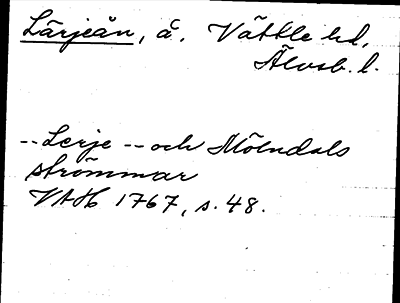 Lärjeån, å. Vättle hd,
Älvsb. l.
-- Lerje -- och Mölndals
strömmar
VAH 1767, s. 48.